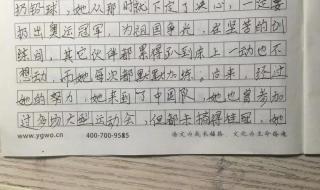 扔铅球，她从那时就下定了决心，一定要
扔出奥运冠军，为祖国争光，在坚苦的训
练间，其它伙伴都累得趴到床上一动也不
想动，而她每次都默默加练。后来，经过
她的努力，她来到了中国队，她也曾参加
过多次大型运动会，但都未摘得桂冠，她
www.ygwo.cn 400-700-9585 语文为成长铺路，文化为生命奠魂